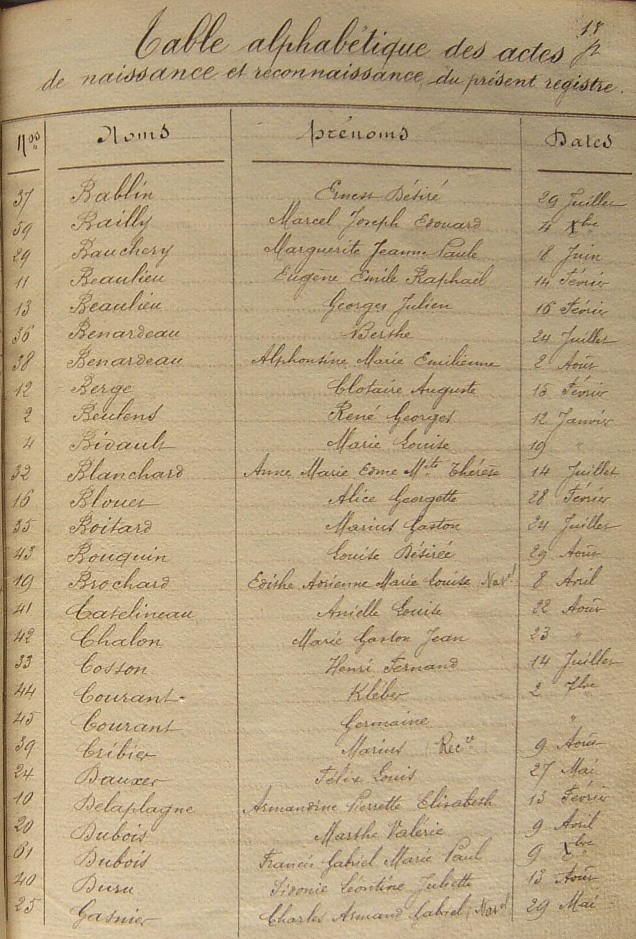 Table alphabétique des actes
de naissance et reconnaissance, du présent registre.
Nos Noms Prénoms Dates
37 Bablin Ernest Désiré 29 Juillet
59 Bailly Marcel Joseph Edouard 4 Xbre
29 Bauchery Marguerite Jeanne Paule 8 Juin
11 Beaulieu Eugène Emile Raphaël 14 Février
13 Beaulieu Georges Julien 16 Février
36 Benardeau Berthe 24 Juillet
38 Benardeau Alphonsine Marie Emilienne 2 Août
12 Berge Clotaire Auguste 15 Février
2 Beulens René Georges 12 Janvier
4 Bidault Marie Louise 19 "
32 Blanchard Anne Marie Edme Mite Thérèse 14 Juillet
16 Blouet Alice Georgette 28 Février
35 Boitard Marius Gaston 24 Juillet
43 Bouquin Louise Désirée 29 Août
19 Brochard Edithe Adrienne Marie Louise 8 Avril
41 Catelineau Anielle Louise 22 Août
42 Chalon Marie Gaston Jean 23 "
33 Cosson Henri Fernand 14 Juillet
44 Courant Kléber 2 7bre
45 Courant Germaine "
39 Cribier Marius Recce 9 Août
24 Dauxer Félix Louis 27 Mai
10 Delaplagne Armandine Perrette Elisabeth 13 Février
20 Dubois Marthe Valérie 9 Avril
61 Dubois Francis Gabriel Marie Paul 9 Xbre
40 Duru Sidonie Léontine Juliette 13 Août
25 Gasnier Charles Armand Gabriel 29 Mai